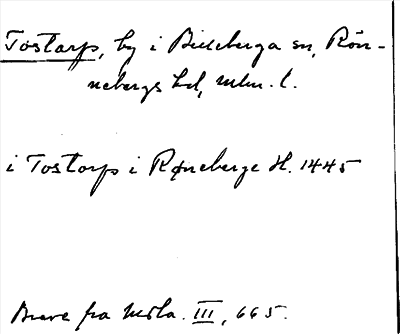 Tostarp, by i Billeberga sn, Rön-
nebergs hd, mlm. l.
i Tostorp i Røneberge H. 1445
Breve fra Midla. III, 665.